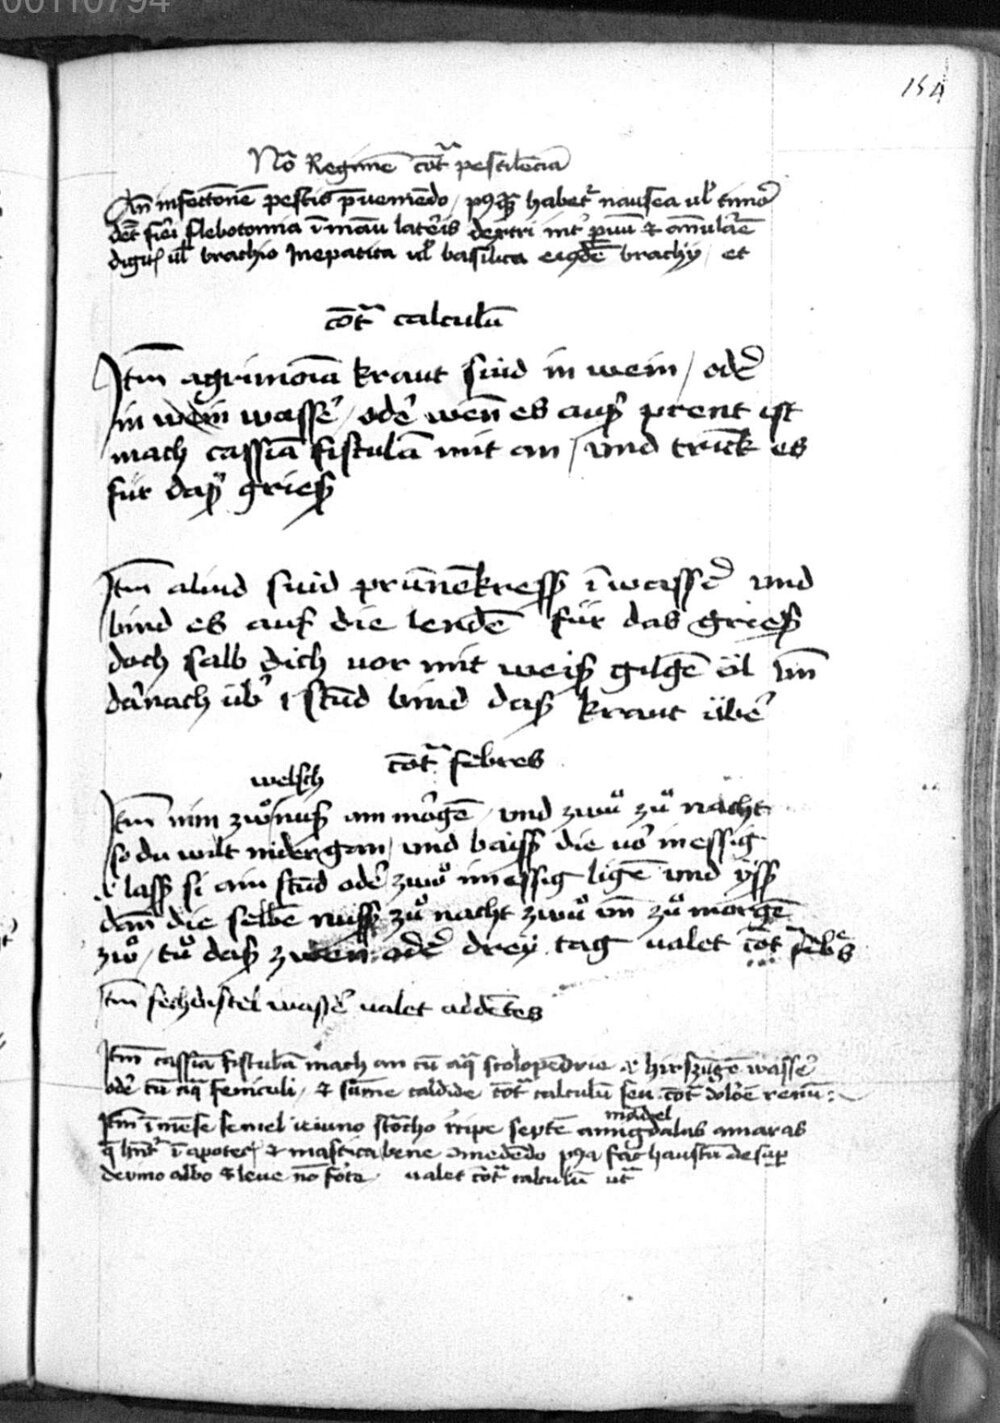 00110794
154
Nō Regimē cōt͛ᵃ pestilēciā
Añ infectionē pestis p̄ueniēdo / habet͛ nausea ul' timōr
det͛ fieri flebotomia ī manu lateris dextri int͛ p̄mū & anularē
digit͛ ul' brachio Inepatica ul' basilica eiusdē brachÿ / et
cōt͛ᵃ calculū
Itm̄ agrimoniā kraut siud in wein / oder͛
in wein wasser͛ / oder͛ wen̄ es auß prent ist
mach cassiā fistulā mit an / vnd trinck es
für daß grieß
Itm̄ aliud siud prun̄ēkreß ī wasser͛ vnd
bind es auf die lendē für das grieß
doch salb dich vor mit weiß gilgē öl vn̄
darnach üb͛ 1 stūd bind daß kraut über͛
cōt͛ᵃ febres
welsch
Itm̄ nim zwo nuß am morgē / vnd zwu zu nacht
so du wilt nidergan / vnd baiß die vor in essig
& laß si ain stūd oder͛ zwo in essig ligē vnd yß
dan̄ die selbē nuß zu nacht zwu vn̄ zu morgē
zwo / tu daß zwen oder͛ drey tag ualet cōt͛ᵃ febr͛s
Itm̄ fechdistel wasser͛ ualet ad dētes
Itm̄ cassiā fistulā mach an cū aq̄ scolopēdrie & hirszūgē wasser͛
oder͛ cū aq̄ feniculi / & sume calide cōt͛ᵃ calculū seu cōt͛ᵃ dolorē renū
mandel
Itm̄ ī mēse semel ieiuno stomacho recipe septē amigdalas amaras
ī apotec͛ & mastica bene fac haustū desup͛
de vino albo & leue nō forte / ualet cōt͛ᵃ calculū ut͛